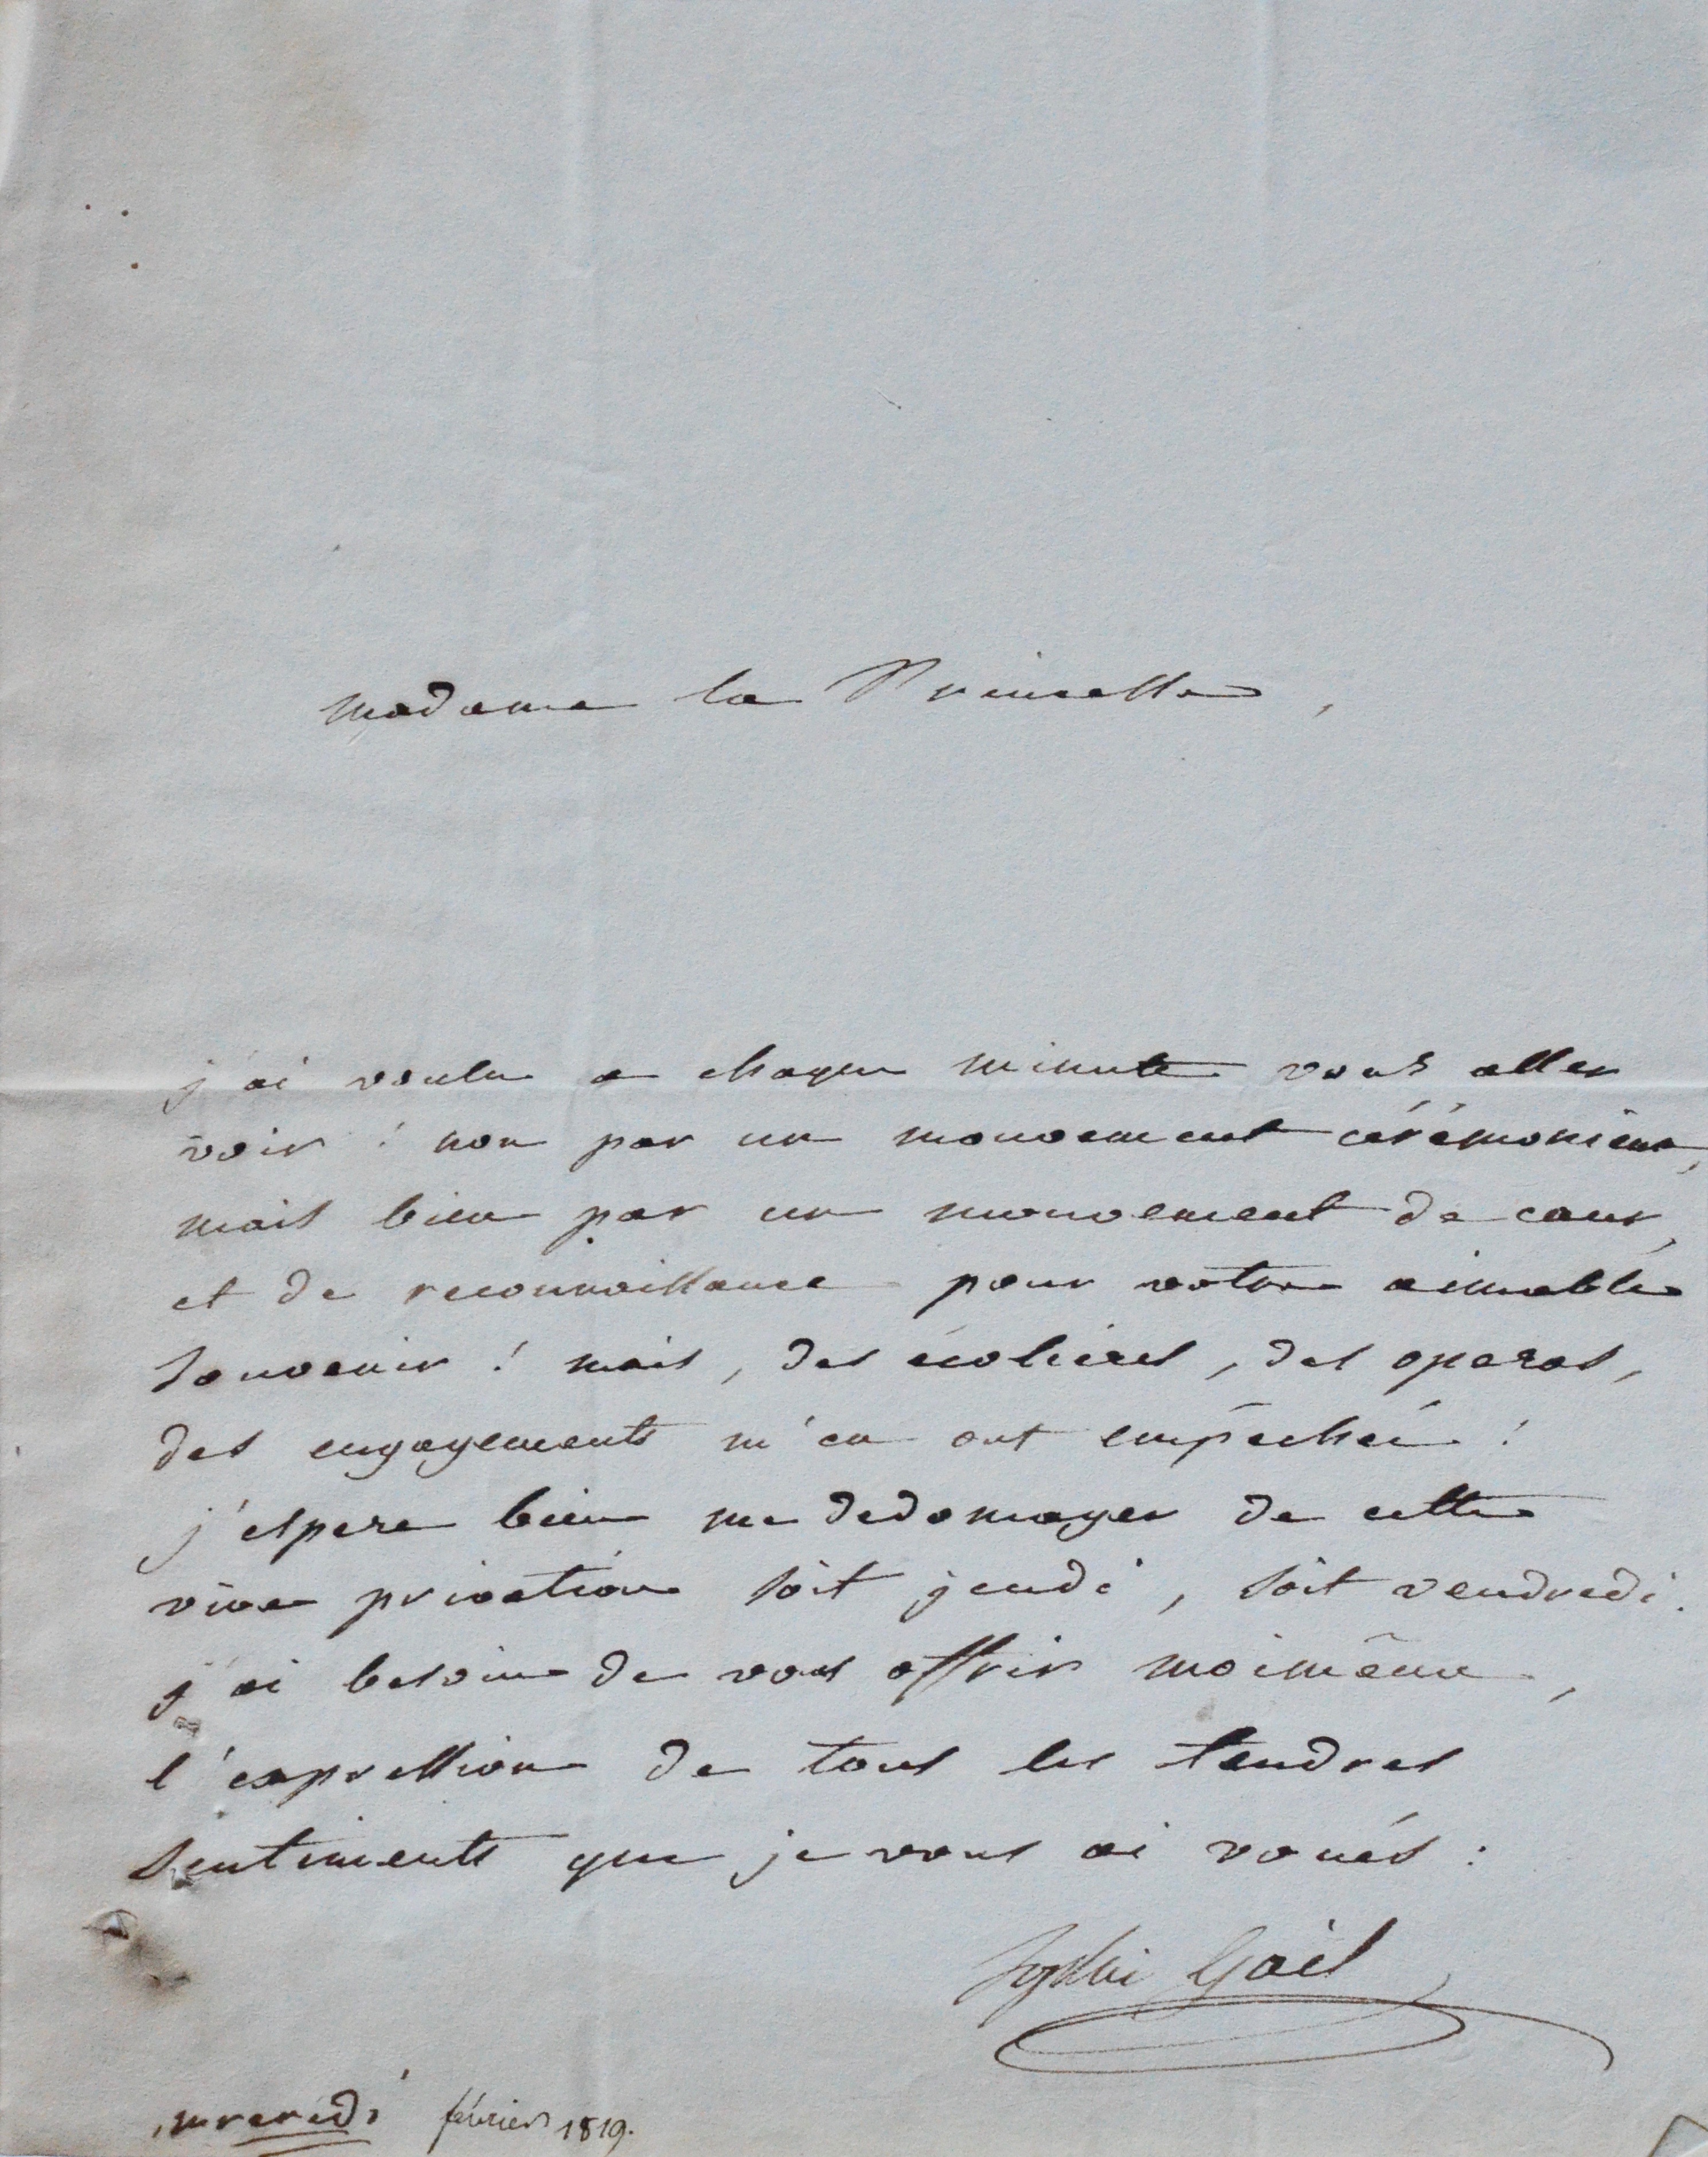 madame la Princesse,
j'ai voulu a chaque minute vous aller
voir ! non par un mouvement cérémonieux,
mais bien par un mouvement de cœur,
et de reconnoissance pour votre aimable
souvenir ! mais, des écoliers, des operas,
des engagements m'en ont empéchée !
j'espere bien me dedomager de cette
vive privation soit jeudi, soit vendredi.
j'ai besoin de vous offrir moimême,
l'expression de tous les tendres
sentiments que je vous ai voués :
Sophie Gail
mercredi février 1819.